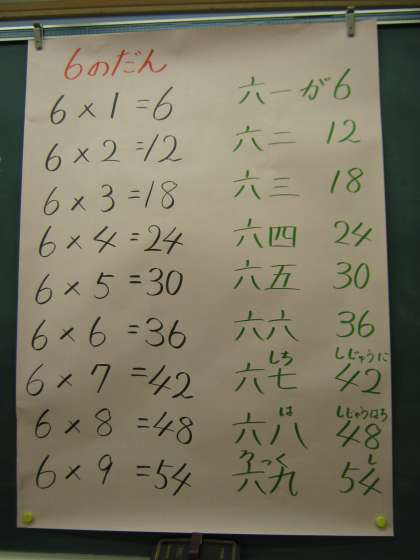 6のだん
6×1=6 六一が6
6×2=12 六二 12
6×3=18 六三 18
6×4=24 六四 24
6×5=30 六五 30
6×6=36 六六 36
しち しじゅうに
6×7=42 六七 42
は しじゅうはち
6×8=48 六八 48
ろっく し
6×9=54 六九 54